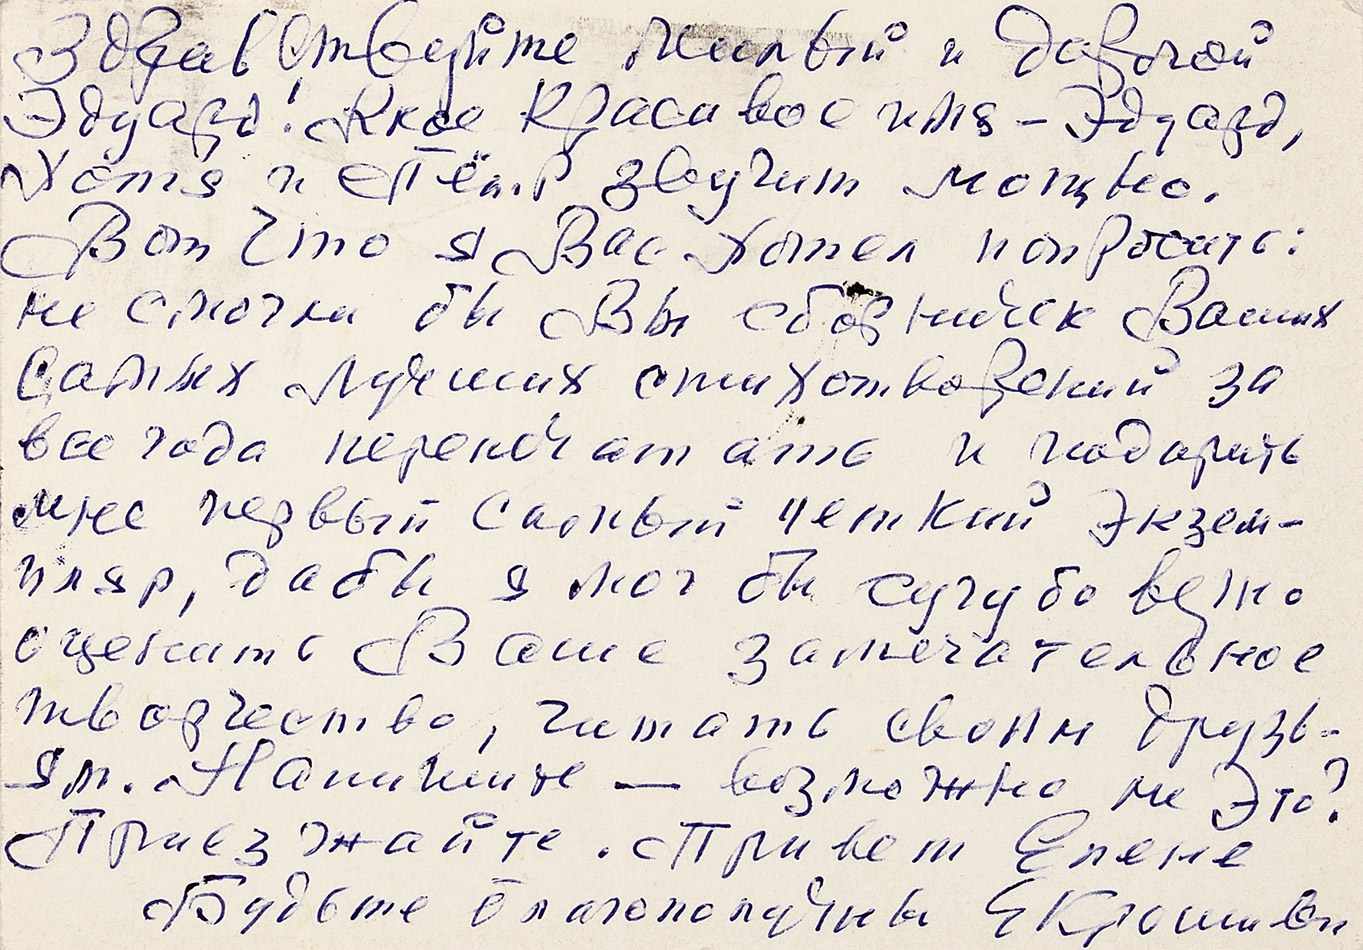 Здравствуйте милый и дорогой
Эдуард! Ккое красивое имя – Эдуард,
Хотя и Пётр звучит мощно.
Вот что я Вас хотел попросить:
не смогли бы Вы сборничек Ваших
самых лучших стихотворений за
все года перепечатать и подарить
мне первый самый четкий экзем-
пляр, дабы я мог бы сугубо
оценить Ваше замечательное
творчество, читать своим друзь-
ям. Напишите — возможно ли это?
Приезжайте. Привет Елене
Будьте благополучны